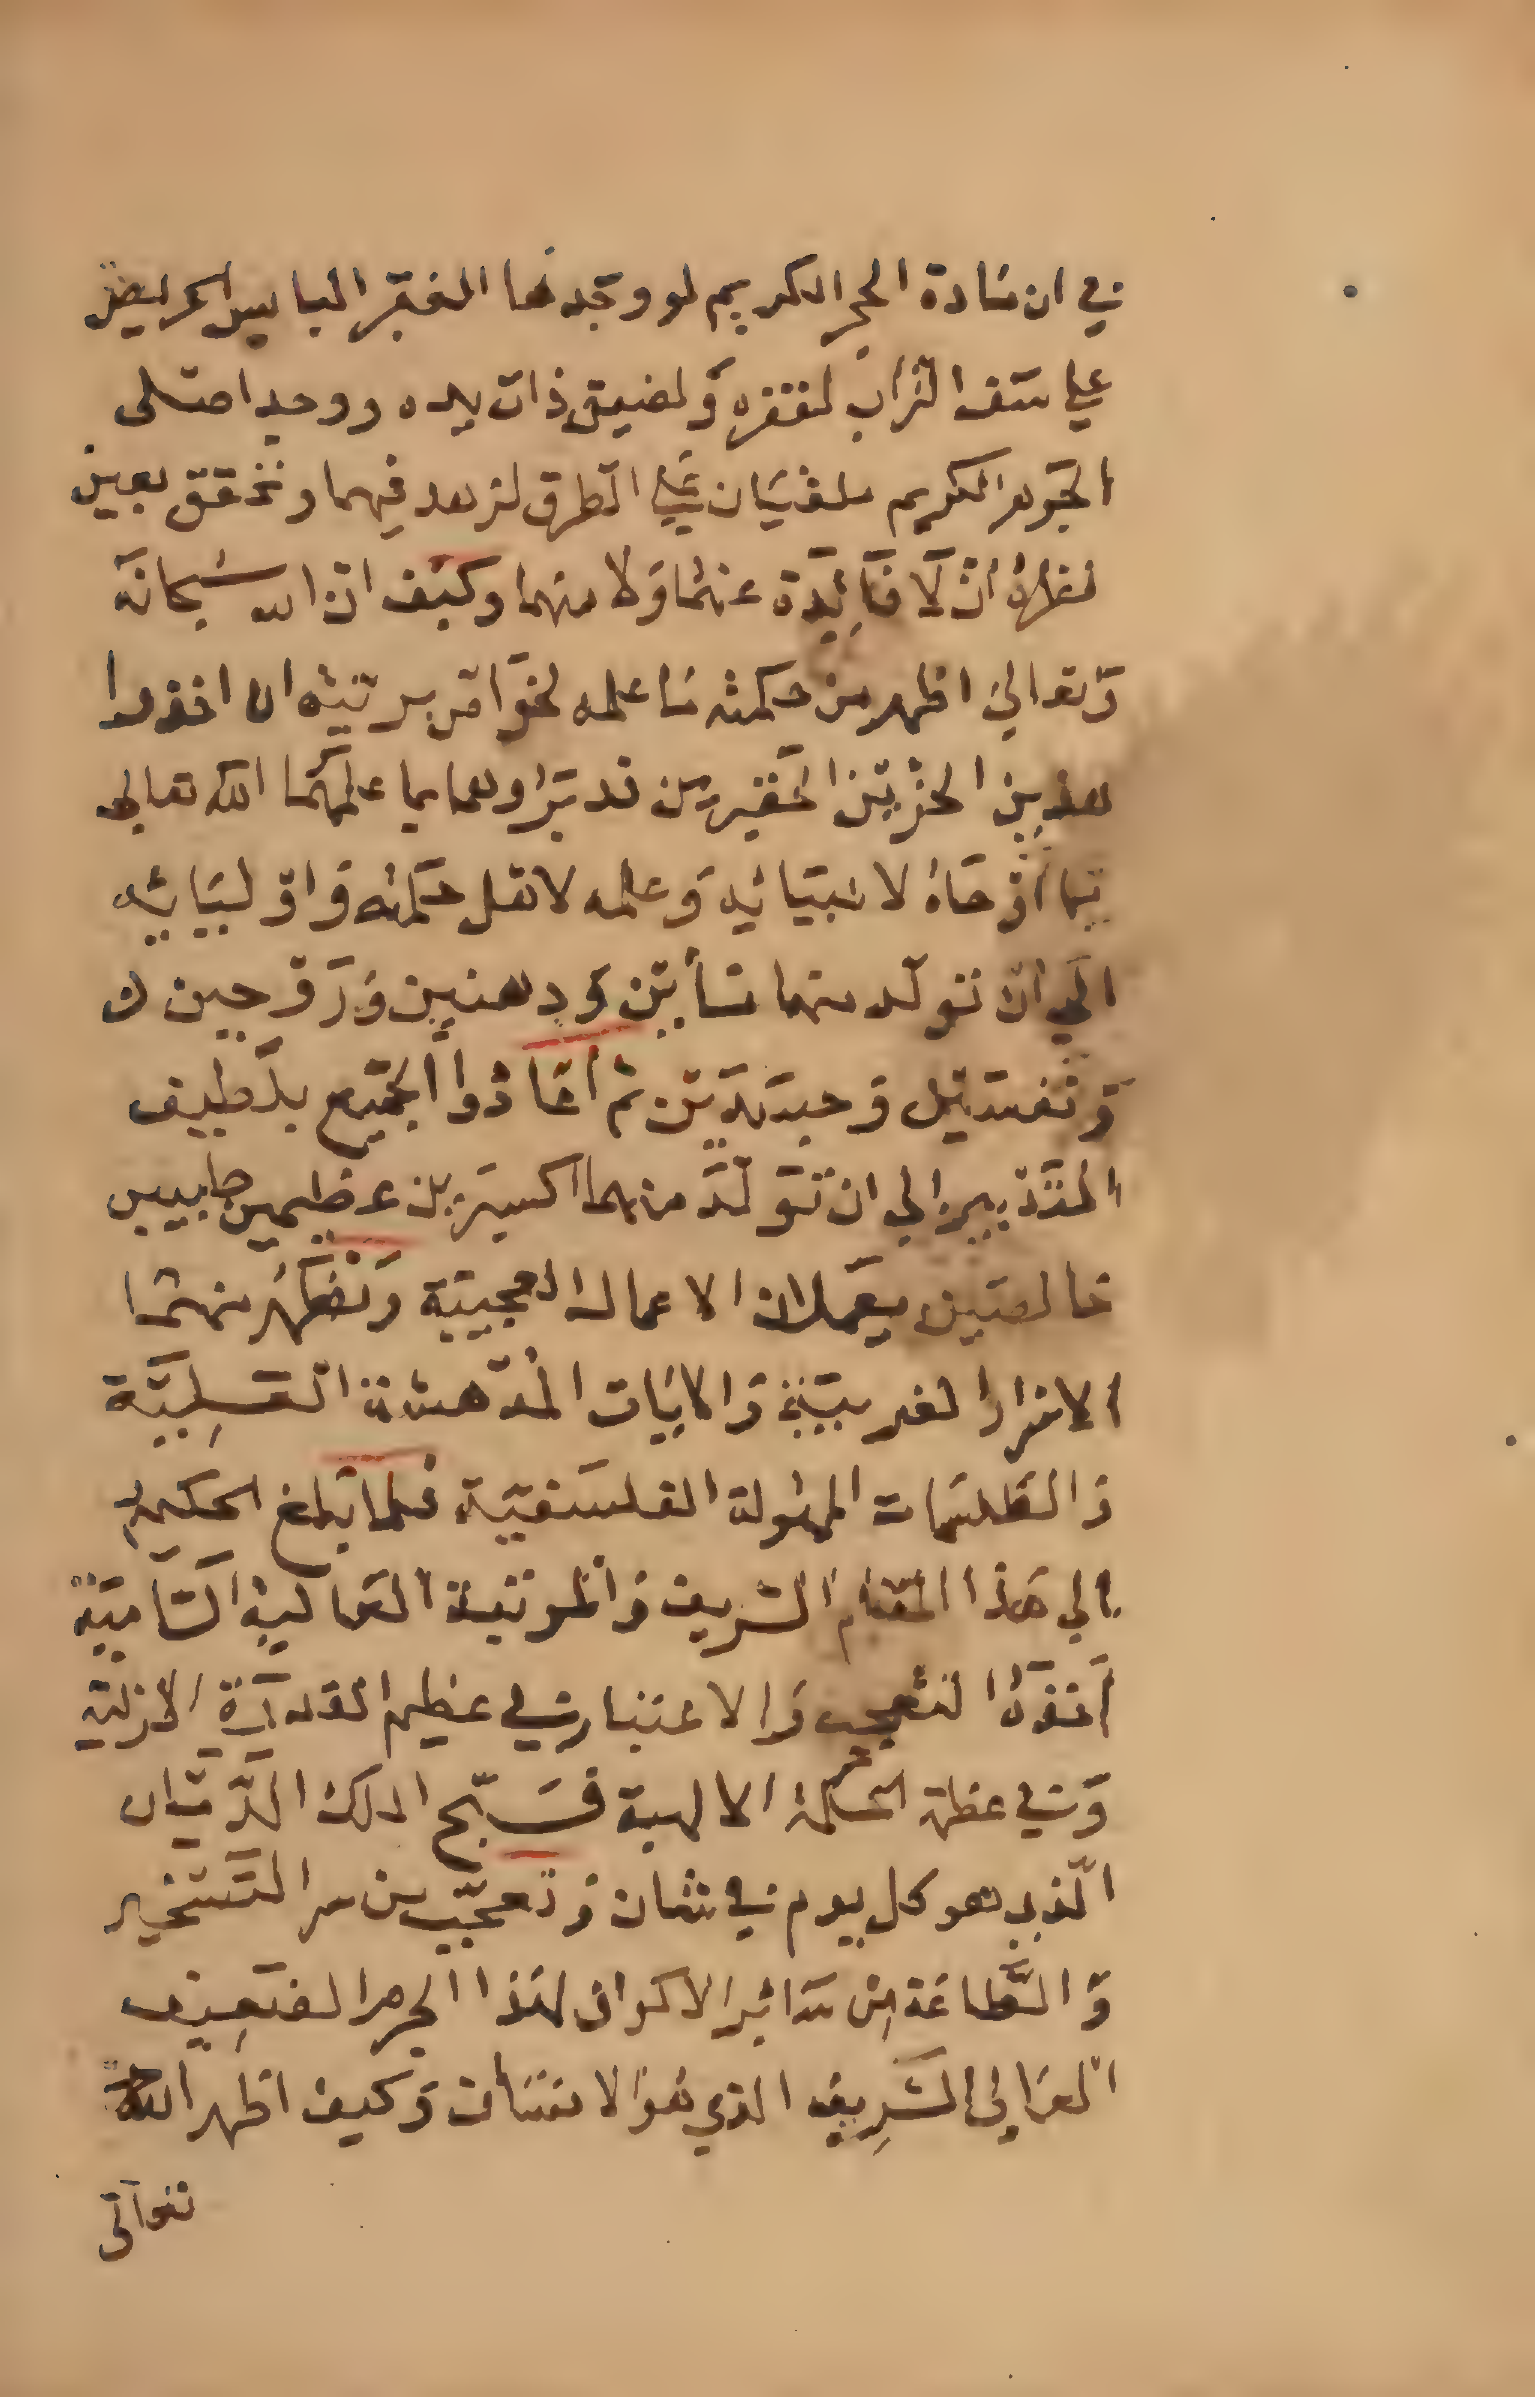 في ان مادة الحجر الكريم لو وجدها الفقير البايس الحريص
علي سف التراب لفقره ولضيق ذات يده ووجد اصلى
الجوهر الكريم ملقيان علي الطرق لزهد فيهما وتحقق بعين
نظره ان لا فايدة عنهما ولا منهما وكيف ان الله سبحانه
وتعالي اظهر من حكمته ما علمه لخواص بريته ان اخذوا
هذين الجزيين الحقيرين ودبراوهما بما علمهما الله تعالى
بما اوحاه لانبيائه وعلمه لاهل حكمته واوليائه
الي ان تولد منهما مأين ودهنين وزوجين
ونفسين وجسدين ثم اعادوا الجميع بلطيف
التدبير الي ان تولد منهما اكسيرين عظيمين
خالصين يعملان الاعمال العجيبة وتظهر منهما
الاسرار الغريبة والايات المدهشة
والطلسمات المهولة الفلسفية فلما بلغ الحكيم
الي هذا المقام الشريف والمرتبة العالية السامية
اخذ في التعجب والاعتبار في عظيم القدرة الازلية
وفي عظمة الحكمة الالهية فسبح الملك الديان
الذي هو كل يوم في شان وتعجب من سر التسخير
والطاعة من سائر الاكوان لهذا الجرم الضعيف
العالي الشريف الذي هو الانسان وكيف اظهر الله
تعالى